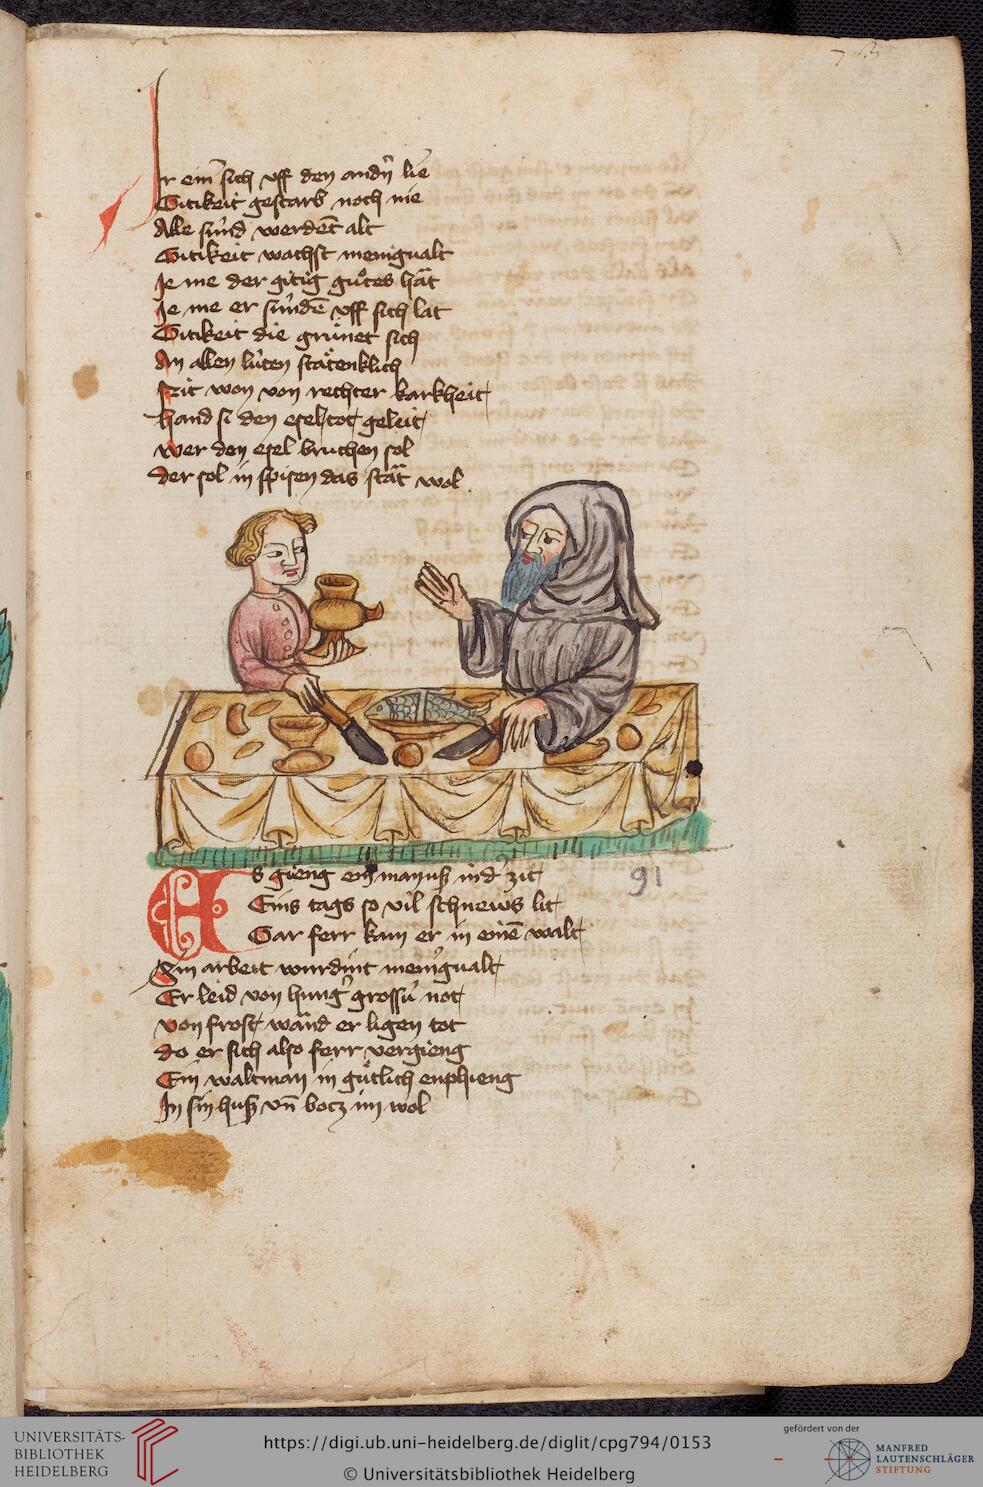 73
Ir ein̄ sich vff den andn̄ lie
Gitikeit gestarb noch nie
Alle súnd werdēt alt
Gitikeit wachst menigualt
Je me der gitig gůtes hät
Je me er súndē vff sich lat
Gitikeit die grůnet sich
An allen lúten stätenklich
Frit won von rechter karkheit
Hand si den esel tot geleit
wer den esel bruchen sol
der sol in spisen das stät wol
Es gieng ein man uß in d' zit
Eins tags so vil schnewes lit
Gar ferr kam er in einē walt
Sin arbeit wurdint menigualt
Er leid von hung' grossú not
von frost wänd er ligen tot
do er sich also ferr vergieng
Ein waltman in gůtlich enphieng
In sin huß vn̄ botz im wol
91
UNIVERSITÄTS-
BIBLIOTHEK
HEIDELBERG
https://digi.ub.uni-heidelberg.de/diglit/cpg794/0153
© Universitätsbibliothek Heidelberg
gefördert von der
MANFRED
LAUTENSCHLÄGER
STIFTUNG